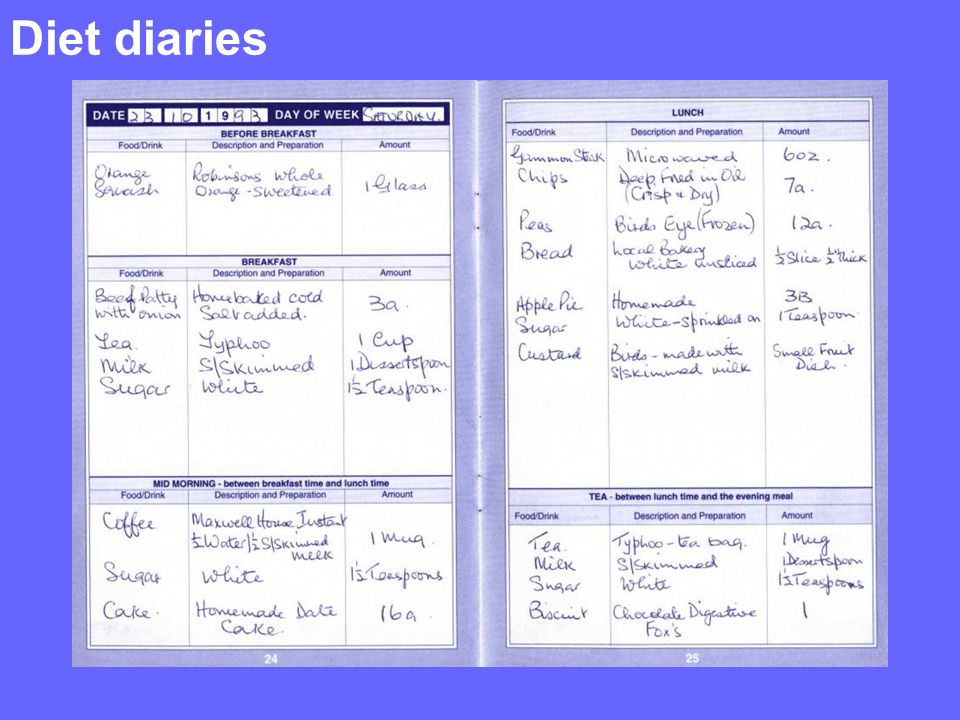 Diet diaries
DATE 23 10 1993 DAY OF WEEK SATURDAY.
BEFORE BREAKFAST
Food/Drink Description and Preparation Amount
Orange Robinsons Whole
Squash Orange - Sweetened 1 Glass
BREAKFAST
Food/Drink Description and Preparation Amount
Beef Patty Homebaked cold 3a.
with onion Salt added.
Tea. Typhoo 1 Cup
Milk S/Skimmed 1 Dessertspoon
Sugar White 1½ Teaspoon.
MID MORNING - between breakfast time and lunch time
Food/Drink Description and Preparation Amount
Coffee Maxwell House Instant
½ Water/½ S/Skimmed 1 Mug.
Milk
Sugar White 1½ Teaspoons
Cake. Homemade Date 16a.
Cake.
24
LUNCH
Food/Drink Description and Preparation Amount
Gammon Steak Microwaved 6oz.
Chips Deep Fried in Oil 7a.
(Crisp & Dry)
Peas Birds Eye (Frozen) 12a.
Bread Local Bakery ½ Slice ½" Thick
White unsliced
Apple Pie Homemade 3B
Sugar White - Sprinkled on 1 Teaspoon
Custard Birds - made with Small Fruit
S/Skimmed milk Dish.
TEA - between lunch time and the evening meal
Food/Drink Description and Preparation Amount
Tea. Typhoo - tea bag. 1 Mug
Milk S/Skimmed 1 Dessertspoon
Sugar White 1½ Teaspoons
Biscuit Chocolate Digestive 1
Fox's
25